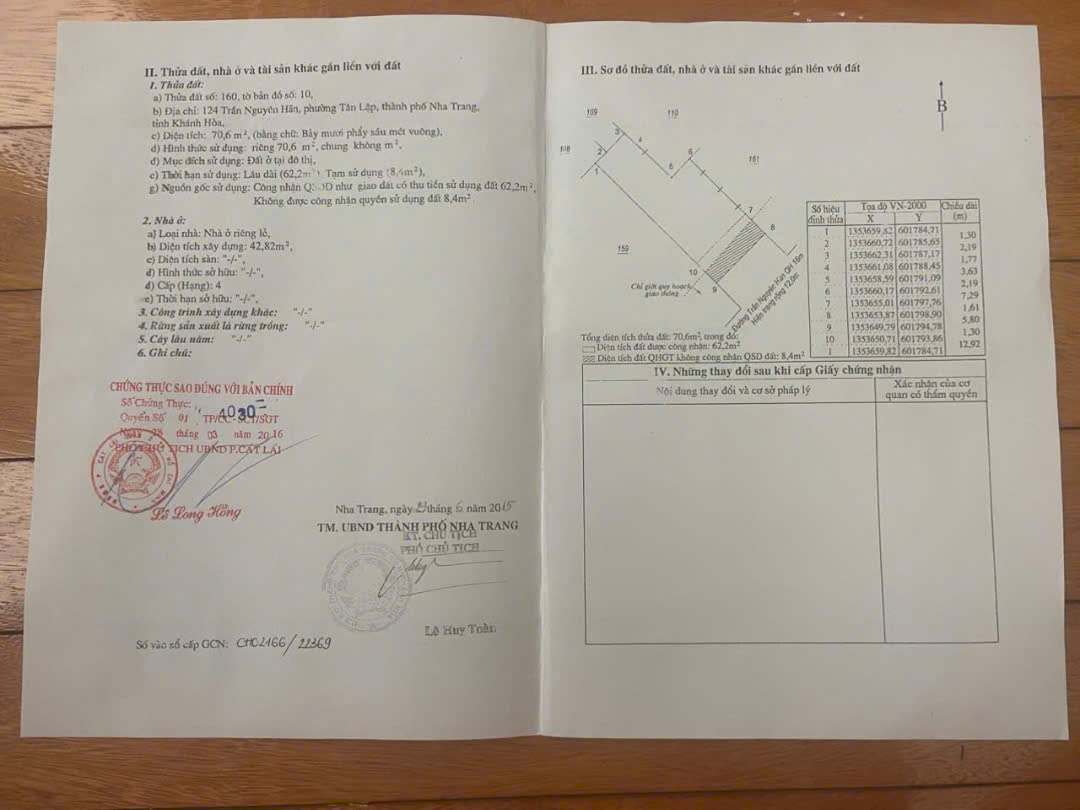 II. Thửa đất, nhà ở và tài sản khác gắn liền với đất
1. Thửa đất:
a) Thửa đất số: 160, tờ bản đồ số: 10,
b) Địa chỉ: 124 Trần Nguyên Hãn, phường Tân Lập, thành phố Nha Trang,
tỉnh Khánh Hòa,
c) Diện tích: 70,6 m², (bằng chữ: Bảy mươi phẩy sáu mét vuông),
d) Hình thức sử dụng: riêng 70,6 m², chung không m²,
đ) Mục đích sử dụng: Đất ở tại đô thị,
e) Thời hạn sử dụng: Lâu dài (62,2m²) Tạm sử dụng (8,4m²),
g) Nguồn gốc sử dụng: Công nhận QSDĐ như giao đất có thu tiền sử dụng đất 62,2m²,
Không được công nhận quyền sử dụng đất 8,4m²
2. Nhà ở:
a) Loại nhà: Nhà ở riêng lẻ,
b) Diện tích xây dựng: 42,82m²,
c) Diện tích sàn: "-/-",
d) Hình thức sở hữu: "-/-",
đ) Cấp (Hạng): 4
e) Thời hạn sở hữu: "-/-",
3. Công trình xây dựng khác: "-/-"
4. Rừng sản xuất là rừng trồng: "-/-"
5. Cây lâu năm: "-/-"
6. Ghi chú:
CHỨNG THỰC SAO ĐÚNG VỚI BẢN CHÍNH
Số Chứng Thực: 4030
Quyển Số 01 TP/CC-SCT/SGT
Ngày 28 tháng 03 năm 2016
PHÓ CHỦ TỊCH UBND P.CÁT LÁI
Lê Long Hồng
Nha Trang, ngày 29 tháng 6 năm 2015
TM. UBND THÀNH PHỐ NHA TRANG
KT. CHỦ TỊCH
PHÓ CHỦ TỊCH
Lê Huy Toàn
Số vào sổ cấp GCN: CH02166/22369
III. Sơ đồ thửa đất, nhà ở và tài sản khác gắn liền với đất
B
109
110
3
4
118
2
5
6
161
1
7
8
159
10
9
Chỉ giới quy hoạch
giao thông
Đường Trần Nguyên Hãn QH 16m
Hiện trạng rộng 12,0m
Số hiệu đỉnh thửa Tọa độ VN-2000 X Y Chiều dài (m)
1 1353659,82 601784,71
1,30
2 1353660,72 601785,65
2,19
3 1353662,31 601787,17
1,77
4 1353661,08 601788,45
3,63
5 1353658,59 601791,09
2,19
6 1353660,17 601792,61
7,29
7 1353655,01 601797,76
1,61
8 1353653,87 601798,90
5,80
9 1353649,79 601794,78
1,30
10 1353650,71 601793,86
12,92
1 1353659,82 601784,71
Tổng diện tích thửa đất: 70,6m², trong đó:
Diện tích đất được công nhận: 62,2m²
Diện tích đất QHGT không công nhận QSD đất: 8,4m²
IV. Những thay đổi sau khi cấp Giấy chứng nhận
Nội dung thay đổi và cơ sở pháp lý
Xác nhận của cơ
quan có thẩm quyền